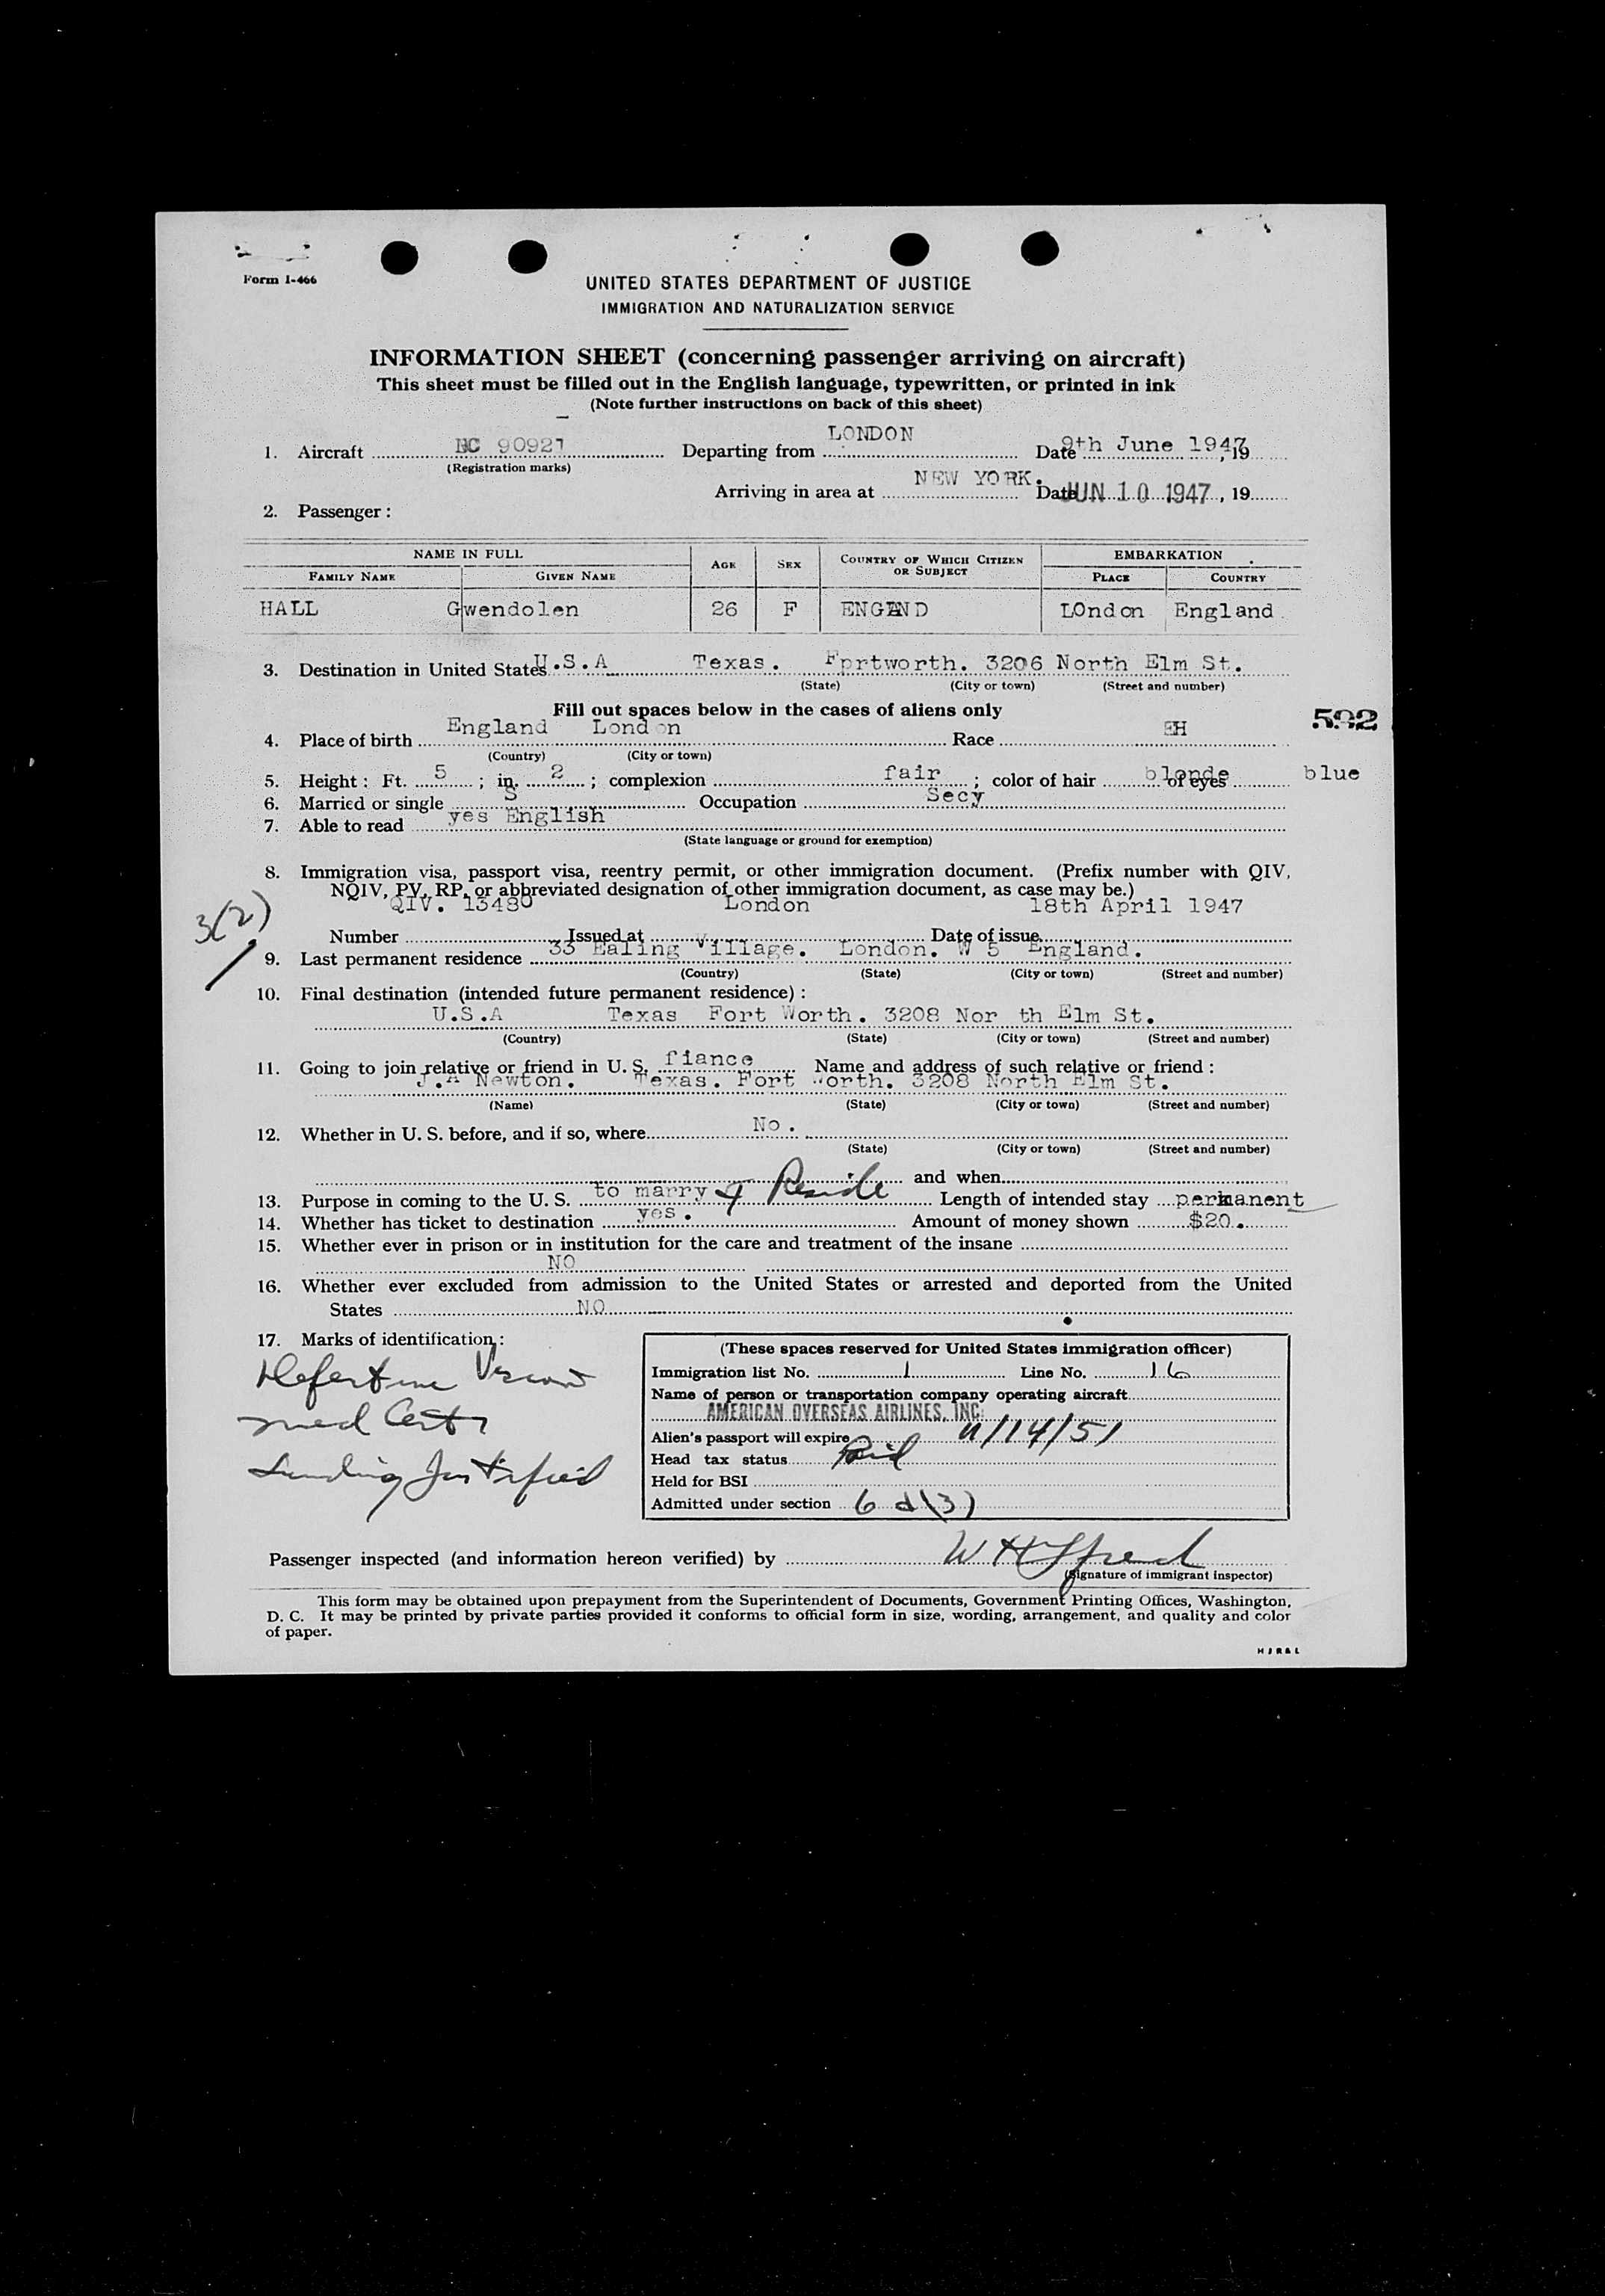 Form I-466
UNITED STATES DEPARTMENT OF JUSTICE
IMMIGRATION AND NATURALIZATION SERVICE
INFORMATION SHEET (concerning passenger arriving on aircraft)
This sheet must be filled out in the English language, typewritten, or printed in ink
(Note further instructions on back of this sheet)
1. Aircraft NC 90921 Departing from LONDON Date 9th June 1947, 19
(Registration marks)
Arriving in area at NEW YORK. Date JUN 10 1947, 19
2. Passenger:
NAME IN FULL AGE SEX COUNTRY OF WHICH CITIZEN OR SUBJECT EMBARKATION
FAMILY NAME GIVEN NAME PLACE COUNTRY
HALL Gwendolen 26 F ENGAND LOndon England
3. Destination in United States U.S.A Texas. Fortworth. 3206 North Elm St.
(State) (City or town) (Street and number)
Fill out spaces below in the cases of aliens only
592
4. Place of birth England London Race EH
(Country) (City or town)
5. Height: Ft. 5; in. 2; complexion fair; color of hair blonde of eyes blue
6. Married or single S Occupation Secy
7. Able to read yes English
(State language or ground for exemption)
8. Immigration visa, passport visa, reentry permit, or other immigration document. (Prefix number with QIV,
NQIV, PV, RP, or abbreviated designation of other immigration document, as case may be.)
QIV. 13480 London 18th April 1947
3(2)
Number Issued at Date of issue
9. Last permanent residence 33 Ealing Village. London. W 5 England.
(Country) (State) (City or town) (Street and number)
10. Final destination (intended future permanent residence):
U.S.A Texas Fort Worth. 3208 Nor th Elm St.
(Country) (State) (City or town) (Street and number)
11. Going to join relative or friend in U. S. fiance Name and address of such relative or friend:
J.A Newton. Texas. Fort Worth. 3208 North Elm St.
(Name) (State) (City or town) (Street and number)
12. Whether in U. S. before, and if so, where No.
(State) (City or town) (Street and number)
and when
13. Purpose in coming to the U. S. to marry & Reside Length of intended stay permanent
14. Whether has ticket to destination yes. Amount of money shown $20.
15. Whether ever in prison or in institution for the care and treatment of the insane
NO
16. Whether ever excluded from admission to the United States or arrested and deported from the United
States NO
17. Marks of identification:
Defective Vision
med Cert
Landing Justified
(These spaces reserved for United States immigration officer)
Immigration list No. 1 Line No. 16
Name of person or transportation company operating aircraft
AMERICAN OVERSEAS AIRLINES, INC.
Alien's passport will expire 11/14/51
Head tax status Paid
Held for BSI
Admitted under section 6 d(3)
Passenger inspected (and information hereon verified) by
(Signature of immigrant inspector)
This form may be obtained upon prepayment from the Superintendent of Documents, Government Printing Offices, Washington,
D. C. It may be printed by private parties provided it conforms to official form in size, wording, arrangement, and quality and color
of paper.
H J R & L